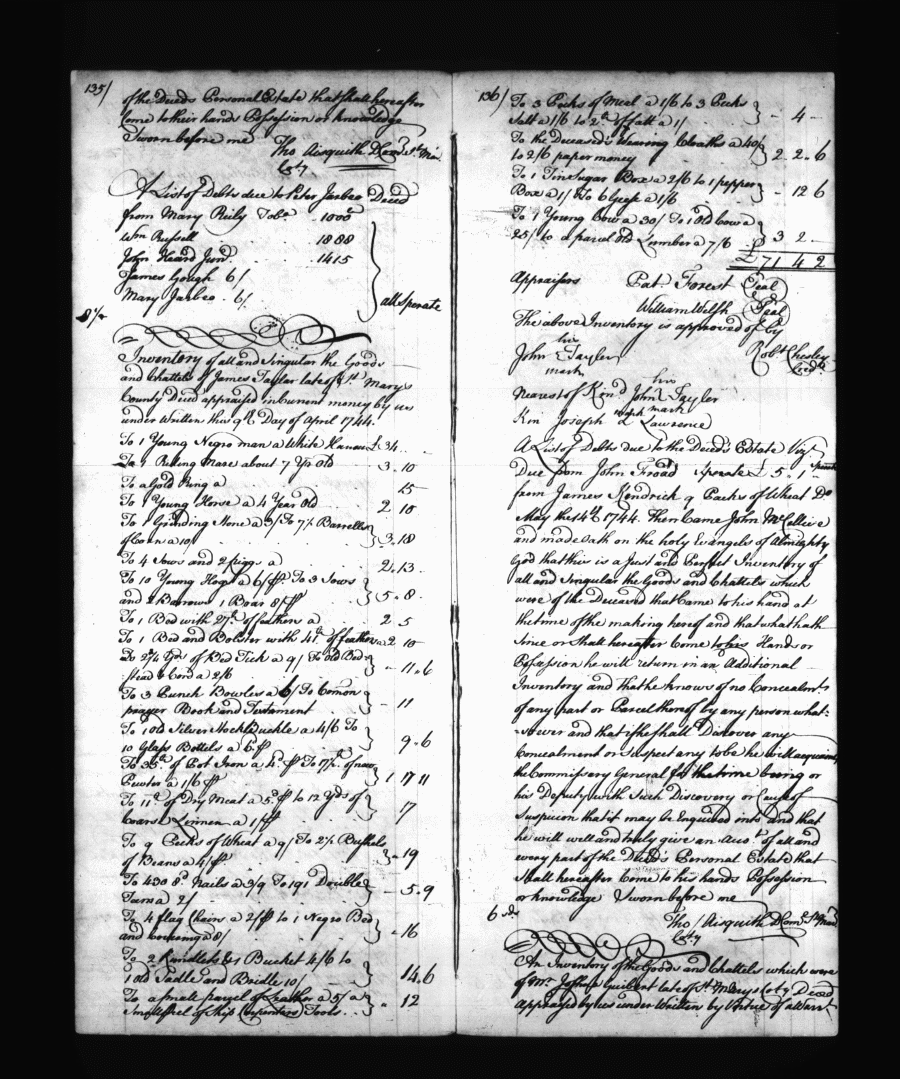 135/
of the Deceds Personal Estate that shall hereafter
Come to their hands Possession or knowledge
Sworn before me
Tho Aisquith D Com St Ma
Coty
A List of Debts due to Peter Jarboe Deced
from Mary Reily Tobo 1000
Wm Russell 1888
John Heard Junr 1415
James Gough 6/
Mary Jarboe 6/
all Sperate
Inventory of all and Singular the Goods
and Chattels of James Taylor late of St Marys
County Deced appraised in Current money by us
under Written this 9th Day of April 1744
To 1 Young Negro man a White £ 34
To 1 Riding Mare about 7 Yrs Old 3 . 10
To a Gold Ring a 15
To 1 Young Horse a 4 Year Old 2 10
To 1 Grinding Stone a 3/ To 7½ Barrells
of Corn a 10/ 3 . 18
To 4 Sows and 2 piggs a 2 . 13
To 10 Young Hogs a 6/ P To 3 Sows
and 2 Barrows 1 Boar 8/ P 5 . 8
To 1 Bed with 27lb of feathers a 2 5
To 1 Bed and Bolster with 41lb of feathers a 2 10
To 2¾ Yds of Bed Tick a 9/ To Old Bed
stead & Cord a 2/6 - 11 . 6
To 3 Punch Bowles a 6/ To Common
prayer Book and Testament - 11
To 1 Old Silver Stock Buckle a 4/6 To
10 Glass Bottels a 6 P 9 . 6
To 35lb of Pot Iron a 4d P To 17½lb of new
Pewter a 1/6 P 1 17 11
To 11lb of Dry Meat a 5d P to 12 Yds of
Coarse Linnen a 1/ P 17
To 9 Pecks of Wheat a 9/ To 2½ Bushels
of Beans a 4/ P - 19
To 430 8d Nails a 3/9 To 191 Double
a 2/ - 5 . 9
To 4 flag Chairs a 2/ P to 1 Negro Bed
and Covering a 8/ - 16
To 2 Rundlets & 1 Bucket 4/6 to
1 old Sadle and Bridle 10/ 14 . 6
To a small parcel of Leather a 5/ a
Small of Ship Carpenters Tools 12
136/
To 3 Pecks of Meal a 1/6 to 3 Pecks
Salt a 1/6 to 2lb of fatt a 1/ - 4 -
To the Deceased's Wearing Cloaths a 40/
to 2/6 paper money 2 . 2 . 6
To 1 Tin Sugar Box a 2/6 to 1 pepper
Box a 1/ To 6 Geese a 1/6 - 12 6
To 1 Young Cow a 30/ To 1 Old Cow a
25/ to a parcel Old Lumber a 7/6 3 2 -
£ 71 4 2
Appraisors Pat Forest Seal
William Welsh Seal
The above Inventory is approved of by
his
John Tayler
mark
Robt Chesley
Credr
Nearest of Kin
his
John Tayler
mark
Kin Joseph Lawrence
A List of Debts due to the Deceds Estate Vizt
Due from John Sperate £ 5 . 1
from James Kendrick 9 Pecks of Wheat Do
May the 14th 1744. Then Came John
and made Oath on the holy Evangels of Almighty
God that this is a Just and Perfect Inventory of
all and Singular the Goods and Chattels which
were of the Deceased that Came to his hand at
the time of the making hereof and that what hath
Since or Shall hereafter Come to his Hands or
Possession he will return in an Additional
Inventory and that he knows of no Concealment
of any part or Parcel thereof by any person what-
soever and that if he shall Discover any
Concealment or suspect any to be he will acquaint
the Commissary General for the time being or
his Deputy with Such Discovery or Cause of
Suspicion that it may be Enquired into and that
he will well and truly give an Acct of all and
every part of the Deceds Personal Estate that
Shall hereafter Come to his hands Possession
or knowledge Sworn before me
Tho Aisquith D Com St Mas
Coty
An Inventory of the Goods and Chattels which were
of Mr Joshua Guibert late of St Marys Coty Deced
Appraised by us under Written by Virtue of a Warrt